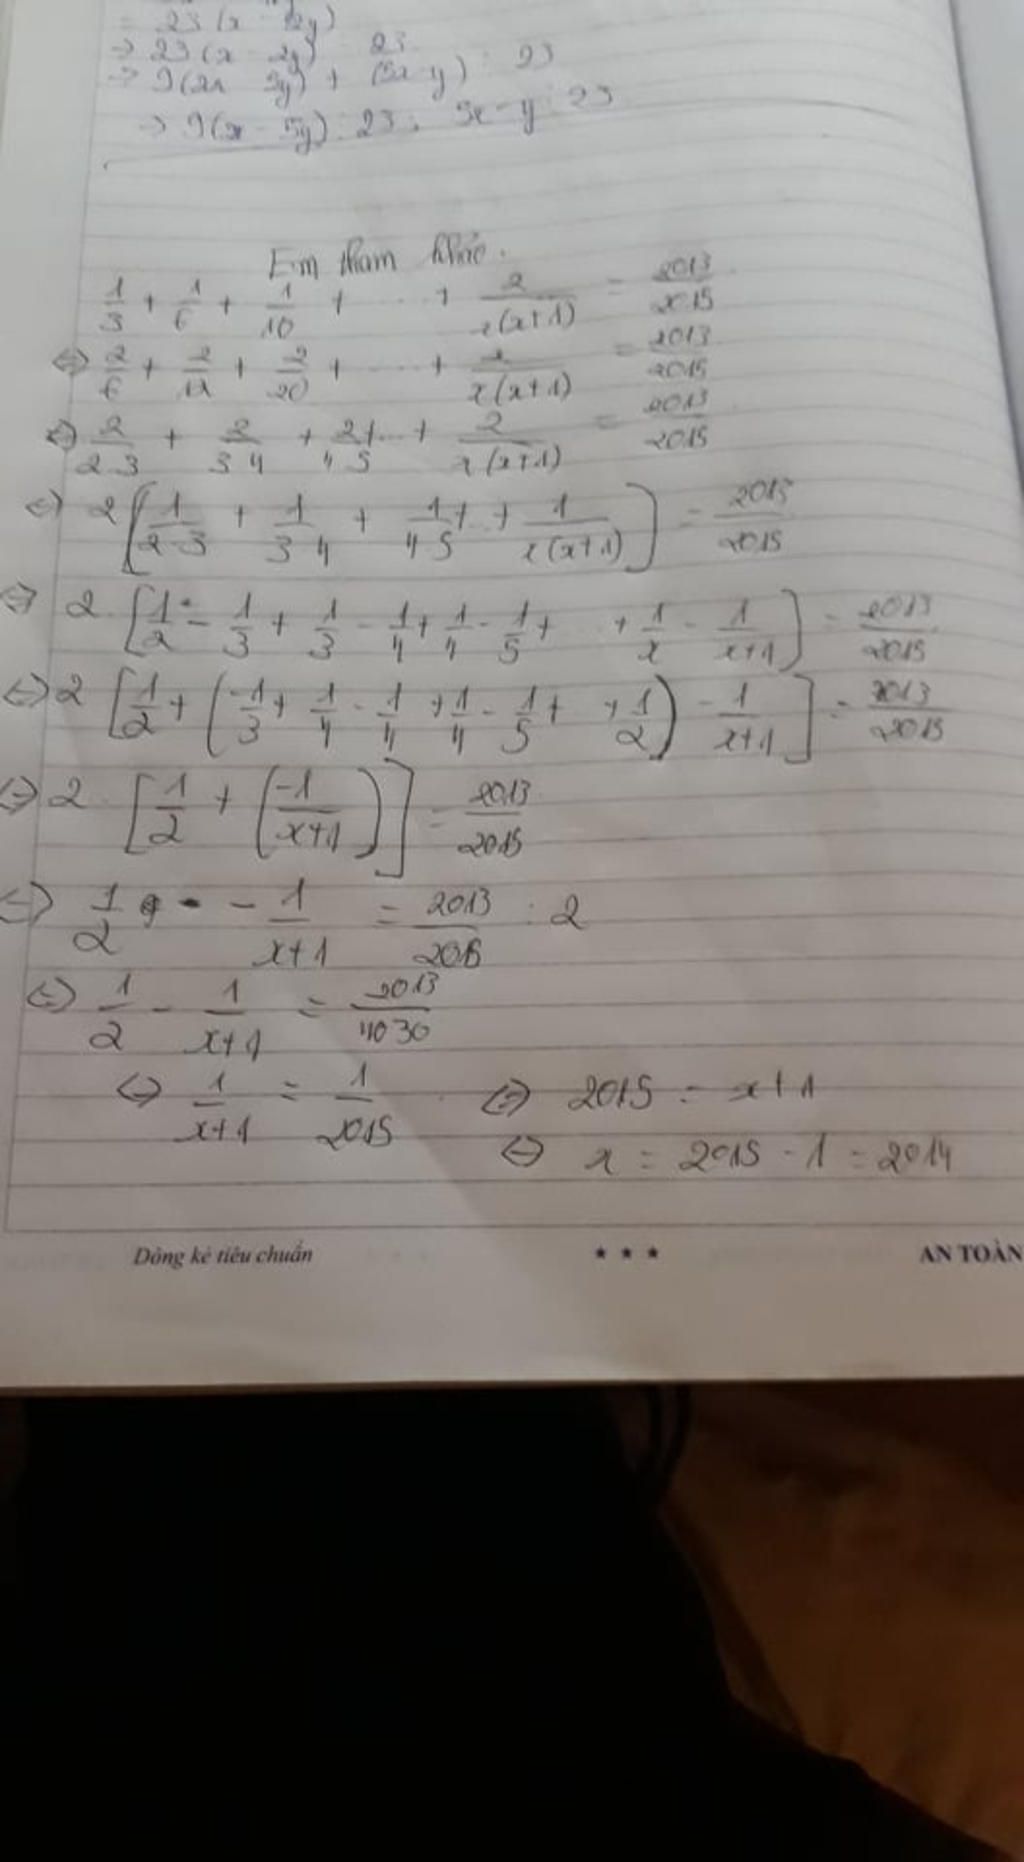 = 23 (x - 2y)
→ 23 (x 2y) 23
→ 9(2x 3y) + (5x y) : 23
→ 9(x - 5y) : 23; 5x - y : 23
Em tham khảo.
1/3 + 1/6 + 1/10 + ... + 2/x(x+1) = 2013/2015
⇔ 2/6 + 2/12 + 2/20 + ... + 2/x(x+1) = 2013/2015
⇔ 2/2.3 + 2/3.4 + 2/4.5 + ... + 2/x(x+1) = 2013/2015
⇔ 2 [1/2.3 + 1/3.4 + 1/4.5 + .. + 1/x(x+1)] = 2013/2015
⇔ 2. [1/2 - 1/3 + 1/3 - 1/4 + 1/4 - 1/5 + ... + 1/x - 1/x+1] = 2013/2015
⇔ 2 [1/2 + (-1/3 + 1/4 - 1/4 + 1/4 - 1/5 + + 1/2) - 1/x+1] = 2013/2015
⇔ 2. [1/2 + (-1/x+1)] = 2013/2015
⇔ 1/2 - 1/x+1 = 2013/2015 : 2
⇔ 1/2 - 1/x+1 = 2013/4030
⇔ 1/x+1 = 1/2015 ⇔ 2015 = x+1
⇔ x = 2015 - 1 = 2014
Dòng kẻ tiêu chuẩn ★ ★ ★ AN TOÀN